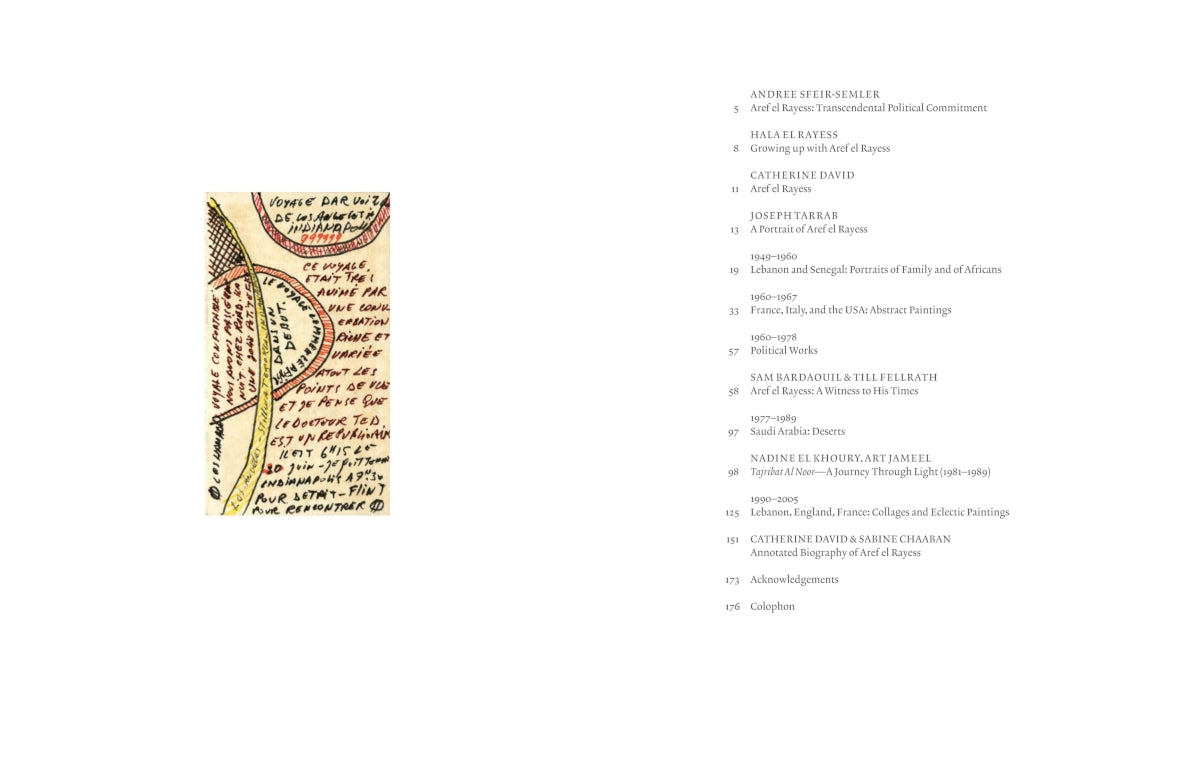 VOYAGE PAR
DE LOS ANGELES À
INDIANAPOLIS
CE VOYAGE
ETAIT TRES
ANIMÉ PAR
UNE CONV
ERSATION
RICHE ET
VARIÉE
ATOUT LES
POINTS DE VUE
ET JE PENSE QUE
LE DOCTOUR TED
EST UN REPUBLICAIN
IL EST 6H15 LE
30 JUIN
INDIANAPOLIS A 7H30
POUR DETAIT-FLINT
POUR RENCONTRER
LE VOYAGE COMMENCE
DANS UN
DEBUT.
VOYAGE CONFORMABLE.
NOUS AVONS PASSE UNE
NUIT CHEZ
UNE
LOS ANGELES
ANDREE SFEIR-SEMLER
5 Aref el Rayess: Transcendental Political Commitment
HALA EL RAYESS
8 Growing up with Aref el Rayess
CATHERINE DAVID
11 Aref el Rayess
JOSEPH TARRAB
13 A Portrait of Aref el Rayess
1949–1960
19 Lebanon and Senegal: Portraits of Family and of Africans
1960–1967
33 France, Italy, and the USA: Abstract Paintings
1960–1978
57 Political Works
SAM BARDAOUIL & TILL FELLRATH
58 Aref el Rayess: A Witness to His Times
1977–1989
97 Saudi Arabia: Deserts
NADINE EL KHOURY, ART JAMEEL
98 Tajribat Al Noor—A Journey Through Light (1981–1989)
1990–2005
125 Lebanon, England, France: Collages and Eclectic Paintings
151 CATHERINE DAVID & SABINE CHAABAN
Annotated Biography of Aref el Rayess
173 Acknowledgements
176 Colophon